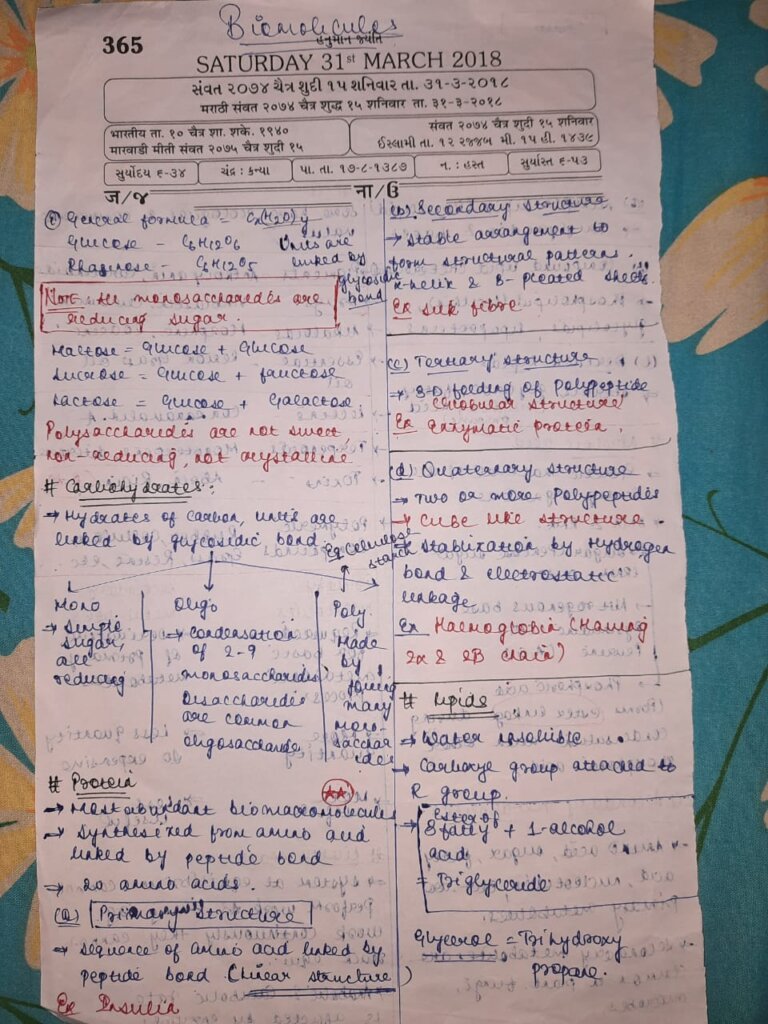 Biomolecules
365
હનુમાન જયંતિ
SATURDAY 31st MARCH 2018
સંવત ૨૦૭૪ ચૈત્ર શુદી ૧૫ શનિવાર તા. ૩૧-૩-૨૦૧૮
મરાઠી સંવત ૨૦૭૪ ચૈત્ર શુદ્ધ ૧૫ શનિવાર તા. ૩૧-૩-૨૦૧૮
ભારતીય તા. ૧૦ ચૈત્ર શા. શકે. ૧૯૪૦
મારવાડી મીતી સંવત ૨૦૭૫ ચૈત્ર શુદી ૧૫
સંવત ૨૦૭૪ ચૈત્ર શુદી ૧૫ શનિવાર
ઈસ્લામી તા. ૧૨ ૨જ્જબ મી. ૧૫ હી. ૧૪૩૯
સુર્યોદય ૬-૩૪
ચંદ્ર : કન્યા
પા. તા. ૧૭-૮-૧૩૮૭
ન. : હસ્ત
સુર્યાસ્ત ૬-૫૩
જ/જ
ના/ઉ
General formula = Cx(H2O)y
Glucose - C6H12O6 Units are
Rhaginose - C6H12O5 linked by
glycosidic
bond
NOTE All monosaccharides are
reducing sugar.
Maltose = Glucose + Glucose
Sucrose = Glucose + fructose
Lactose = Glucose + Galactose
Polysaccharides are not sweet,
non-reducing, not crystalline
# Carbohydrates :
→ Hydrates of carbon, units are
linked by glycosidic bond.
Ex Cellulose
starch
Mono
→ Simple
sugar,
all
reducing
Oligo
→ Condensation
of 2-9
monosaccharides
Disaccharides
are common
oligosaccharide
Poly.
Made
by
joining
many
mono-
sacchar
ides
# Protein
→ Most abundant biomacromolecules
→ Synthesized from amino acid
linked by peptide bond
→ 20 amino acids.
(a) Primary structure
→ sequence of amino acid linked by
peptide bond (linear structure)
Ex Insulin
(b) Secondary structure
→ stable arrangement to
form structural patterns.
α-helix & B- pleated sheets.
Ex silk fibre
(c) Tertiary structure
→ 3-D folding of polypeptide
"Globular structure"
Ex enzymatic protein.
(d) Quaternary structure
→ Two or more polypeptides
→ Cube like structure.
→ Stablization by Hydrogen
bond & electrostatic
linkage
Ex Haemoglobin (Having
2α & 2B chain)
# Lipids
→ Water insoluble.
→ Carboxyl group attached to
R group.
→ Ester of
3 fatty + 1-alcohol
acid
= Triglyceride
Glycerol = Trihydroxy
propane.